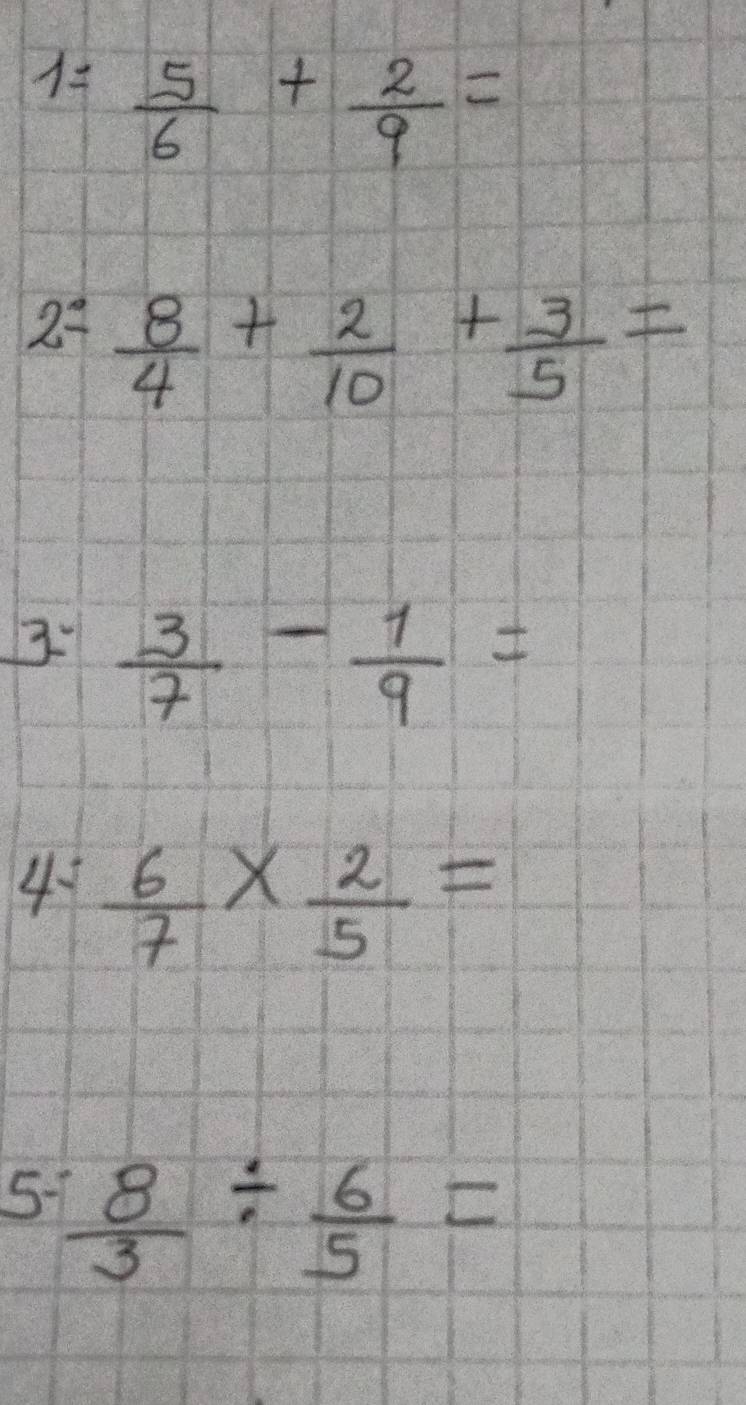 1= 5/6 + 2/9 =
2= 8/4 + 2/10 + 3/5 =
3- 3/7 - 1/9 =
4- 6/7 × 2/5 =
5- 8/3 ÷ 6/5 =